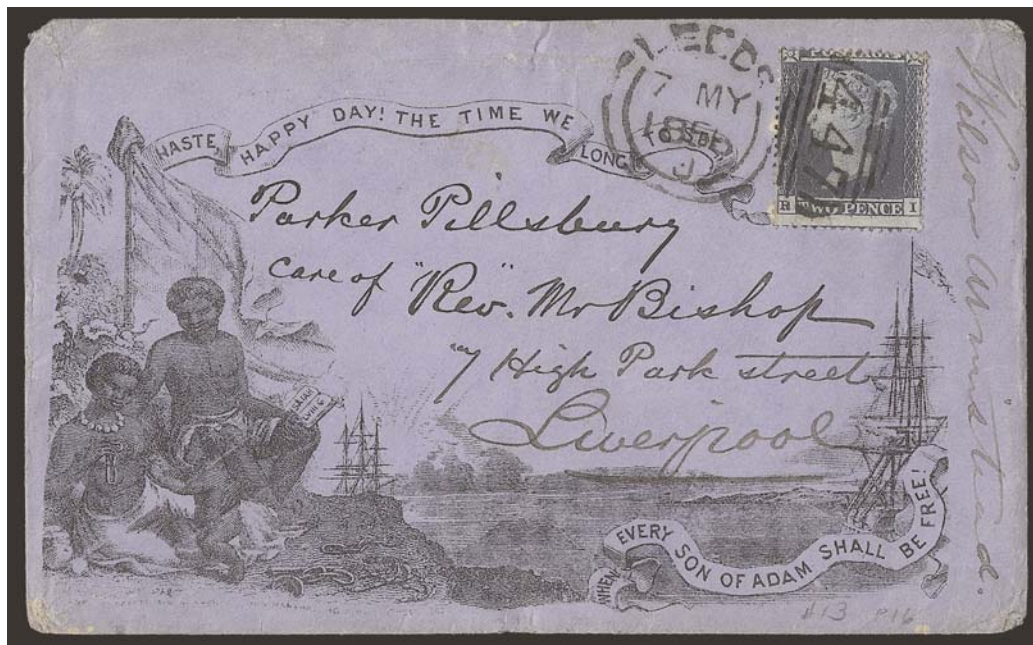 HASTE HAPPY DAY! THE TIME WE LONG TO SEE
LEEDS
7 MY
POSTAGE
447
R TWO PENCE I
Parker Pillsbury
care of "Rev." Mr Bishop
7 High Park street
Liverpool
WHEN EVERY SON OF ADAM SHALL BE FREE!
Wilson Armistead.
HOLY BIBLE
#13 P16